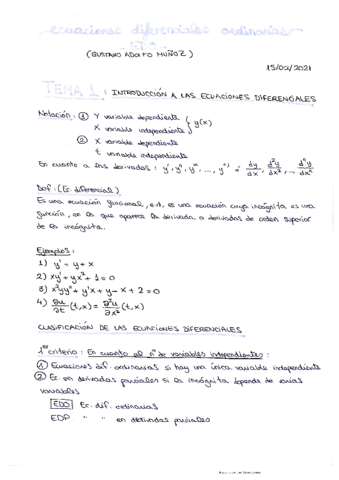 ecuaciones diferenciales ordinarias
(GUSTAVO ADOLFO MUÑOZ)
15/02/2021
TEMA 1: INTRODUCCIÓN A LAS ECUACIONES DIFERENCIALES
Notación: ① Y variable dependiente
X variable independiente } y(x)
② X variable dependiente
t variable independiente
En cuanto a las derivadas: y', y'', y''', ..., yⁿ⁾ ó dy/dx, d²y/dx², ..., dⁿy/dxⁿ
Def: (Ec diferencial)
Es una ecuación funcional, e.d, es una ecuación cuya incógnita es una
función, en la que aparece la derivada o derivadas de orden superior
de la incógnita.
Ejemplos:
1) y' = y + x
2) xy' + yx² + 1 = 0
3) x²yy'' + y'x + y - x + 2 = 0
4) ∂u/∂t (t,x) = ∂²u/∂x² (t,x)
CLASIFICACIÓN DE LAS ECUACIONES DIFERENCIALES
1er criterio: En cuanto al nº de variables independientes:
① Ecuaciones dif. ordinarias si hay una única variable independiente
② Ec. en derivadas parciales si la incógnita depende de varias
variables
EDO Ec. dif. ordinarias
EDP " " en derivadas parciales